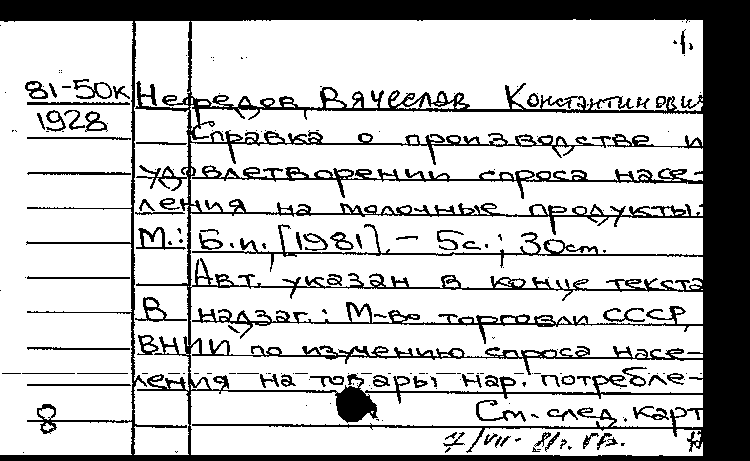 1.
81-50к Нефедов, Вячеслав Константинович
1928 Справка о производстве и
удовлетворении спроса насе-
ления на молочные продукты.
М.: Б.и., [1981]. - 5с.; 30см.
Авт. указан в конце текста
В надзаг.: М-во торговли СССР,
ВНИИ по изучению спроса насе-
ления на товары нар. потребле-
См. след. карт
8